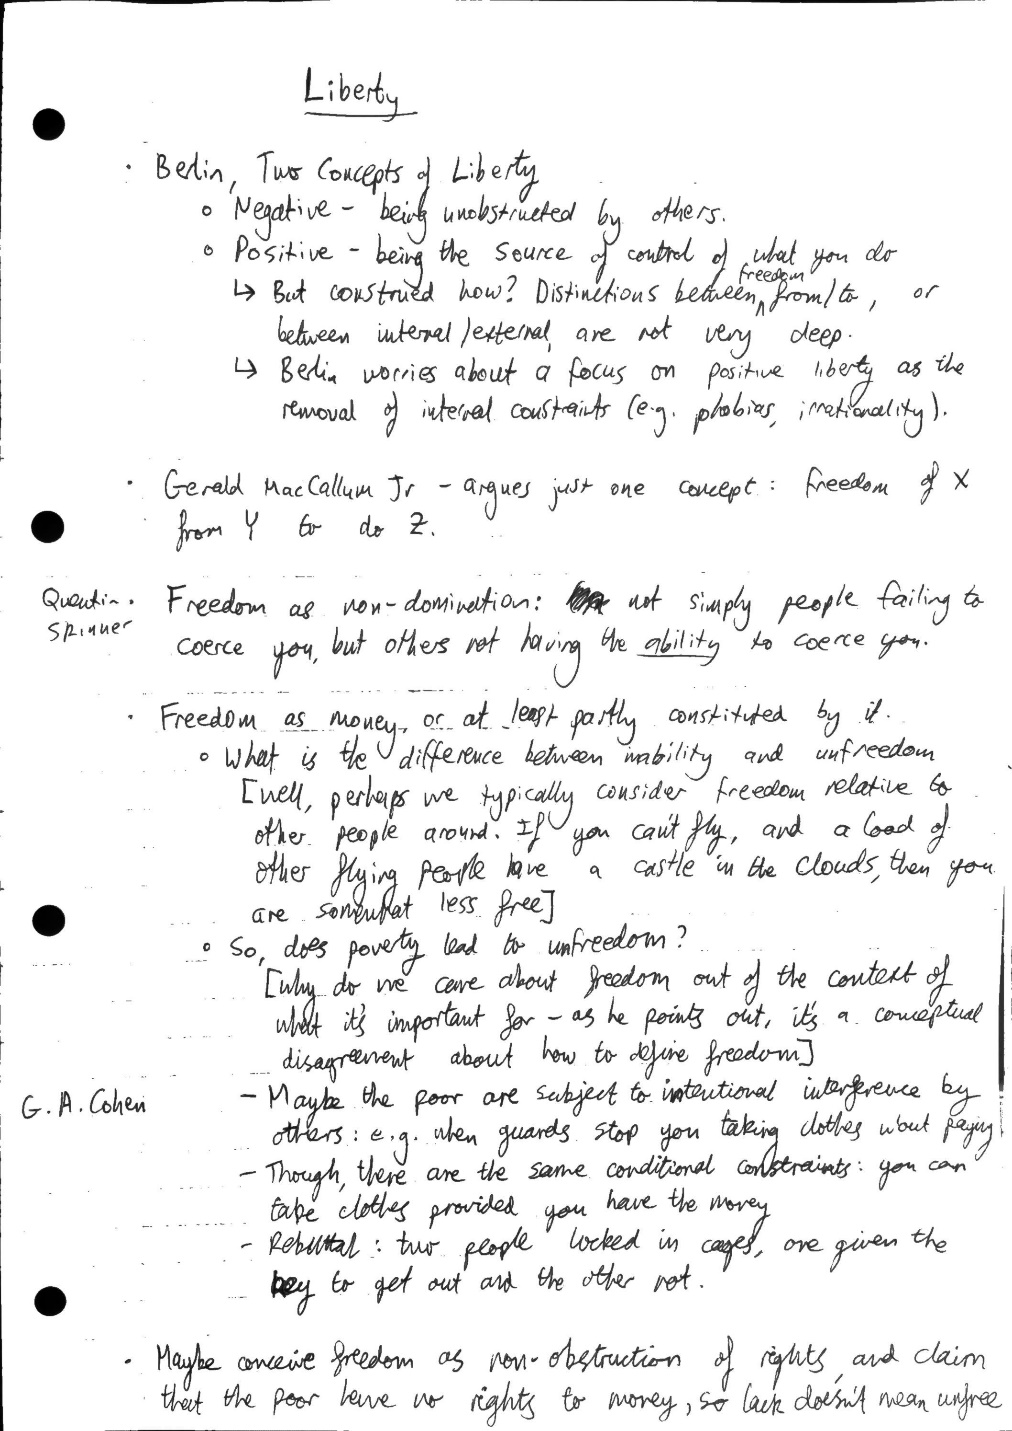 Liberty
· Berlin, Two Concepts of Liberty
o Negative - being unobstructed by others.
o Positive - being the source of control of what you do
↳ But construed how? Distinctions between freedom from/to, or
between internal/external, are not very deep.
↳ Berlin worries about a focus on positive liberty as the
removal of internal constraints (e.g. phobias, irrationality).
· Gerald MacCallum Jr - argues just one concept: freedom of X
from Y to do Z.
Quentin
Skinner
· Freedom as non-domination: not simply people failing to
coerce you, but others not having the ability to coerce you.
· Freedom as money, or at least partly constituted by it.
o What is the difference between inability and unfreedom
[well, perhaps we typically consider freedom relative to
other people around. If you can't fly, and a load of
other flying people have a castle in the clouds, then you
are somewhat less free]
o So, does poverty lead to unfreedom?
[why do we care about freedom out of the context of
what it's important for - as he points out, it's a conceptual
disagreement about how to define freedom]
G. A. Cohen
- Maybe the poor are subject to intentional interference by
others: e.g. when guards stop you taking clothes w'out paying
- Though, there are the same conditional constraints: you can
take clothes provided you have the money
- Rebuttal: two people locked in cages, one given the
key to get out and the other not.
· Maybe conceive freedom as non-obstruction of rights, and claim
that the poor have no rights to money, so lack doesn't mean unfree